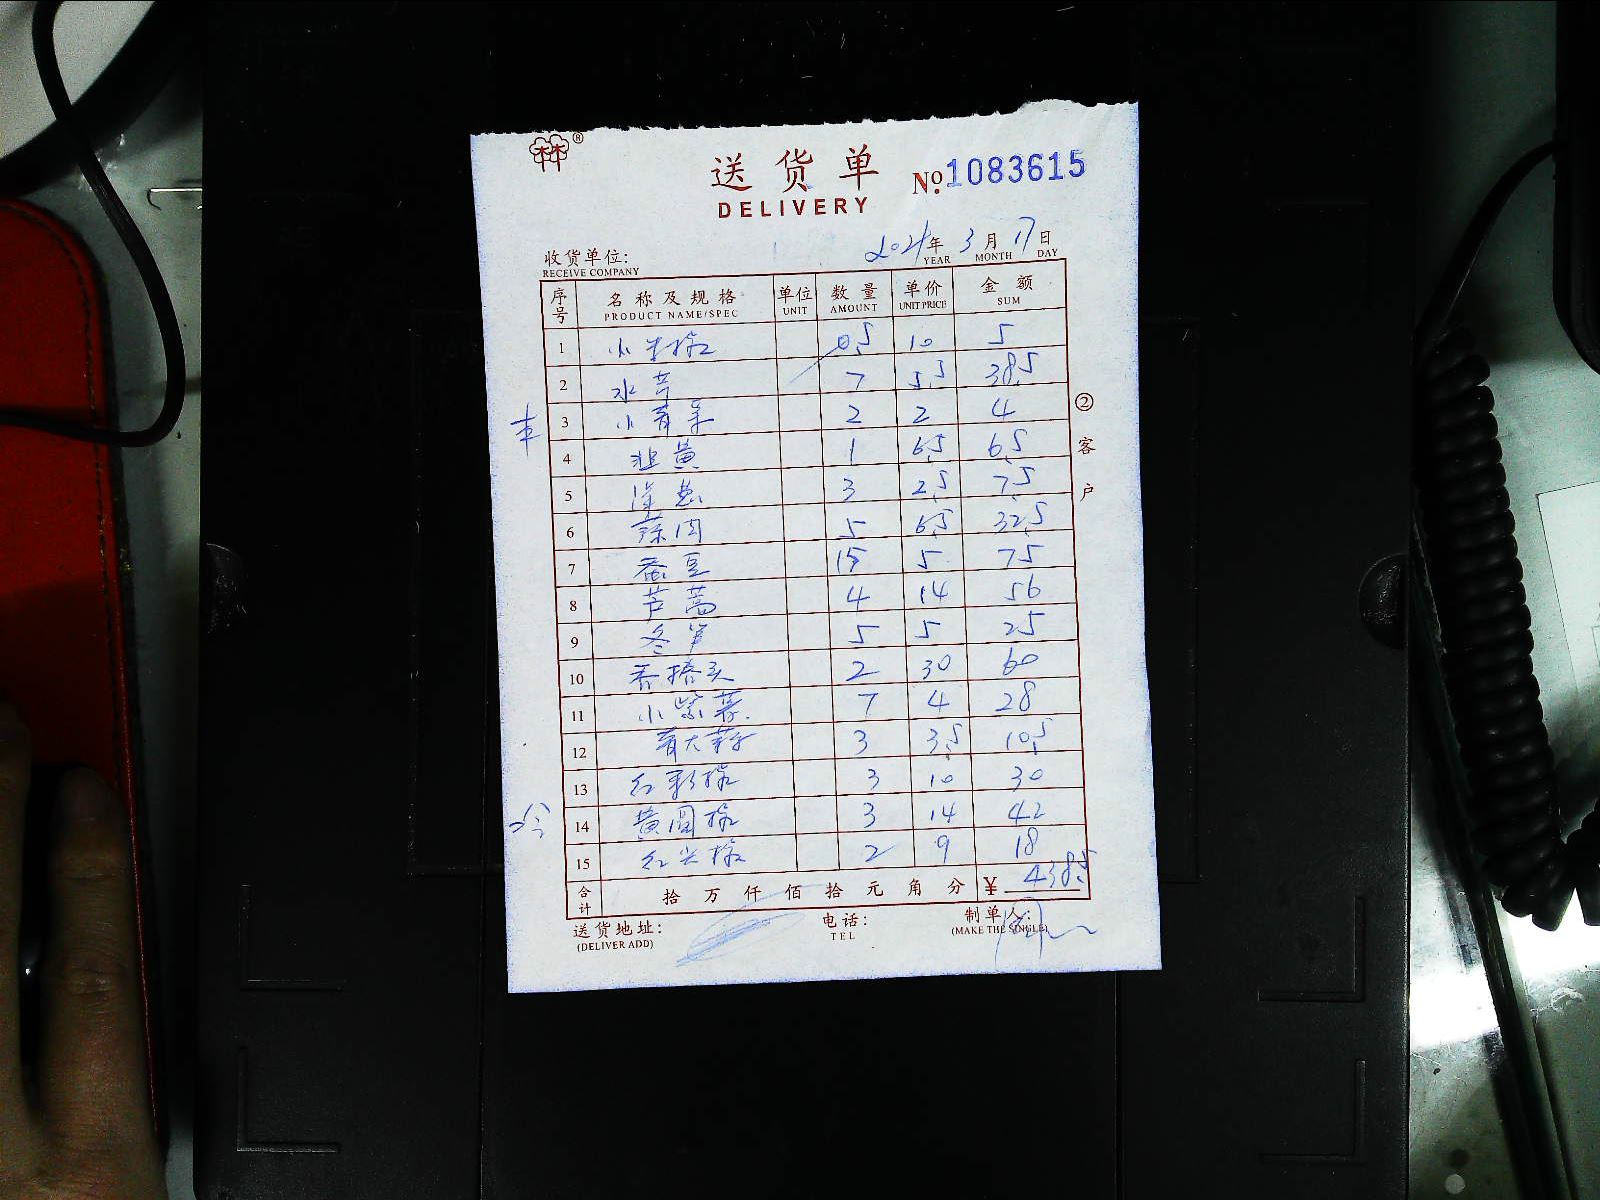 林®
送货单 No.1083615
DELIVERY
2021年3月17日
YEAR MONTH DAY
收货单位:
RECEIVE COMPANY
序号 名称及规格 单位 数量 单价 金额
PRODUCT NAME/SPEC UNIT AMOUNT UNIT PRICE SUM
1 小米椒 0.5 10 5
2 水芹 7 5.5 38.5
3 小青菜 2 2 4
4 韭黄 1 6.5 6.5
5 洋葱 3 2.5 7.5
6 蒜肉 5 6.5 32.5
7 蚕豆 15 5 75
8 芦蒿 4 14 56
9 冬笋 5 5 25
10 杏鲍头 2 30 60
11 小紫薯 7 4 28
12 青大 3 3.5 10.5
13 红彩椒 3 10 30
14 黄圆椒 3 14 42
15 红尖椒 2 9 18
合计 拾万仟佰拾元角分 ¥ 438.5
送货地址: 电话: 制单人:
(DELIVER ADD) TEL (MAKE THE SINGLE)
②客户